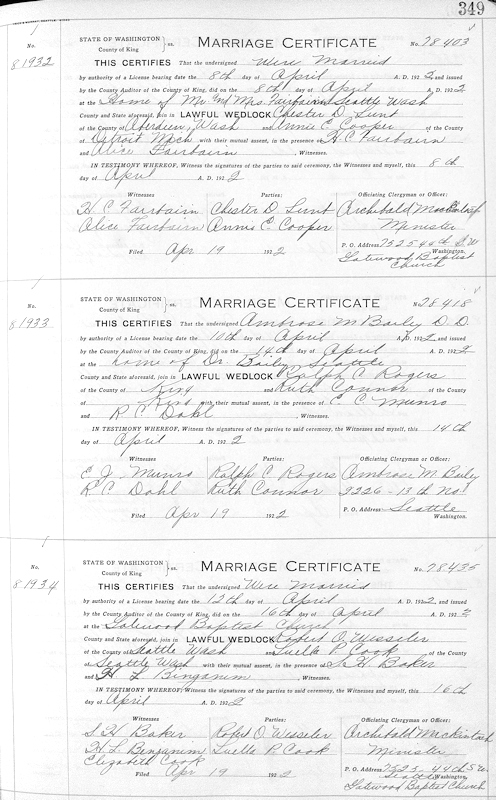 349
No. 81932
STATE OF WASHINGTON } ss.
County of King
MARRIAGE CERTIFICATE
No. 78403
THIS CERTIFIES That the undersigned Were Married
by authority of a License bearing date the 8th day of April A. D. 1922, and issued
by the County Auditor of the County of King, did on the 8th day of April A. D. 1922
at the Home of Mr and Mrs Fairbairn Seattle Wash
County and State aforesaid, join in LAWFUL WEDLOCK Chester D. Lunt
of the County of Aberdeen, Wash and Annie E. Cooper of the County
of Detroit Mich with their mutual assent, in the presence of H C Fairbairn
and Alice Fairbairn, Witnesses.
IN TESTIMONY WHEREOF, Witness the signatures of the parties to said ceremony, the Witnesses and myself, this 8th
day of April A. D. 1922
Witnesses Parties: Officiating Clergyman or Officer:
H C Fairbairn Chester D. Lunt Archibald MacKintosh
Alice Fairbairn Annie E. Cooper Minister
P. O. Address 7325 44th S.W
Washington.
Filed Apr 19 1922 Gatewood Baptist
Church
No. 81933
STATE OF WASHINGTON } ss.
County of King
MARRIAGE CERTIFICATE
No. 78418
THIS CERTIFIES That the undersigned Ambrose M Bailey D. D.
by authority of a License bearing date the 10th day of April A. D. 1922, and issued
by the County Auditor of the County of King, did on the 14th day of April A. D. 1922
at the home of Dr. Bailey Seattle
County and State aforesaid, join in LAWFUL WEDLOCK Ralph C Rogers
of the County of King and Ruth Connor of the County
of King with their mutual assent, in the presence of E C Munro
and R C Dahl, Witnesses.
IN TESTIMONY WHEREOF, Witness the signatures of the parties to said ceremony, the Witnesses and myself, this 14th
day of April A. D. 1922
Witnesses Parties: Officiating Clergyman or Officer:
E J Munro Ralph C Rogers Ambrose M Bailey
R C Dahl Ruth Connor 2226-13th No.
P. O. Address Seattle
Washington.
Filed Apr 19 1922
No. 81934
STATE OF WASHINGTON } ss.
County of King
MARRIAGE CERTIFICATE
No. 78435
THIS CERTIFIES That the undersigned Were Married
by authority of a License bearing date the 12th day of April A. D. 1922, and issued
by the County Auditor of the County of King, did on the 16th day of April A. D. 1922
at the Gatewood Baptist Church
County and State aforesaid, join in LAWFUL WEDLOCK Robert O. Wesseler
of the County of Seattle Wash and Luella P. Cook of the County
of Seattle Wash with their mutual assent, in the presence of S. H Baker
and H L Bengamin, Witnesses.
IN TESTIMONY WHEREOF, Witness the signatures of the parties to said ceremony, the Witnesses and myself, this 16th
day of April A. D. 1922
Witnesses Parties: Officiating Clergyman or Officer:
S H Baker Robert O Wesseler Archibald Mackintosh
H L Bengamin Luella P. Cook Minister
Elizabeth Cook P. O. Address 7325 44th S W.
Seattle Washington.
Filed Apr 19 1922 Gatewood Baptist Church